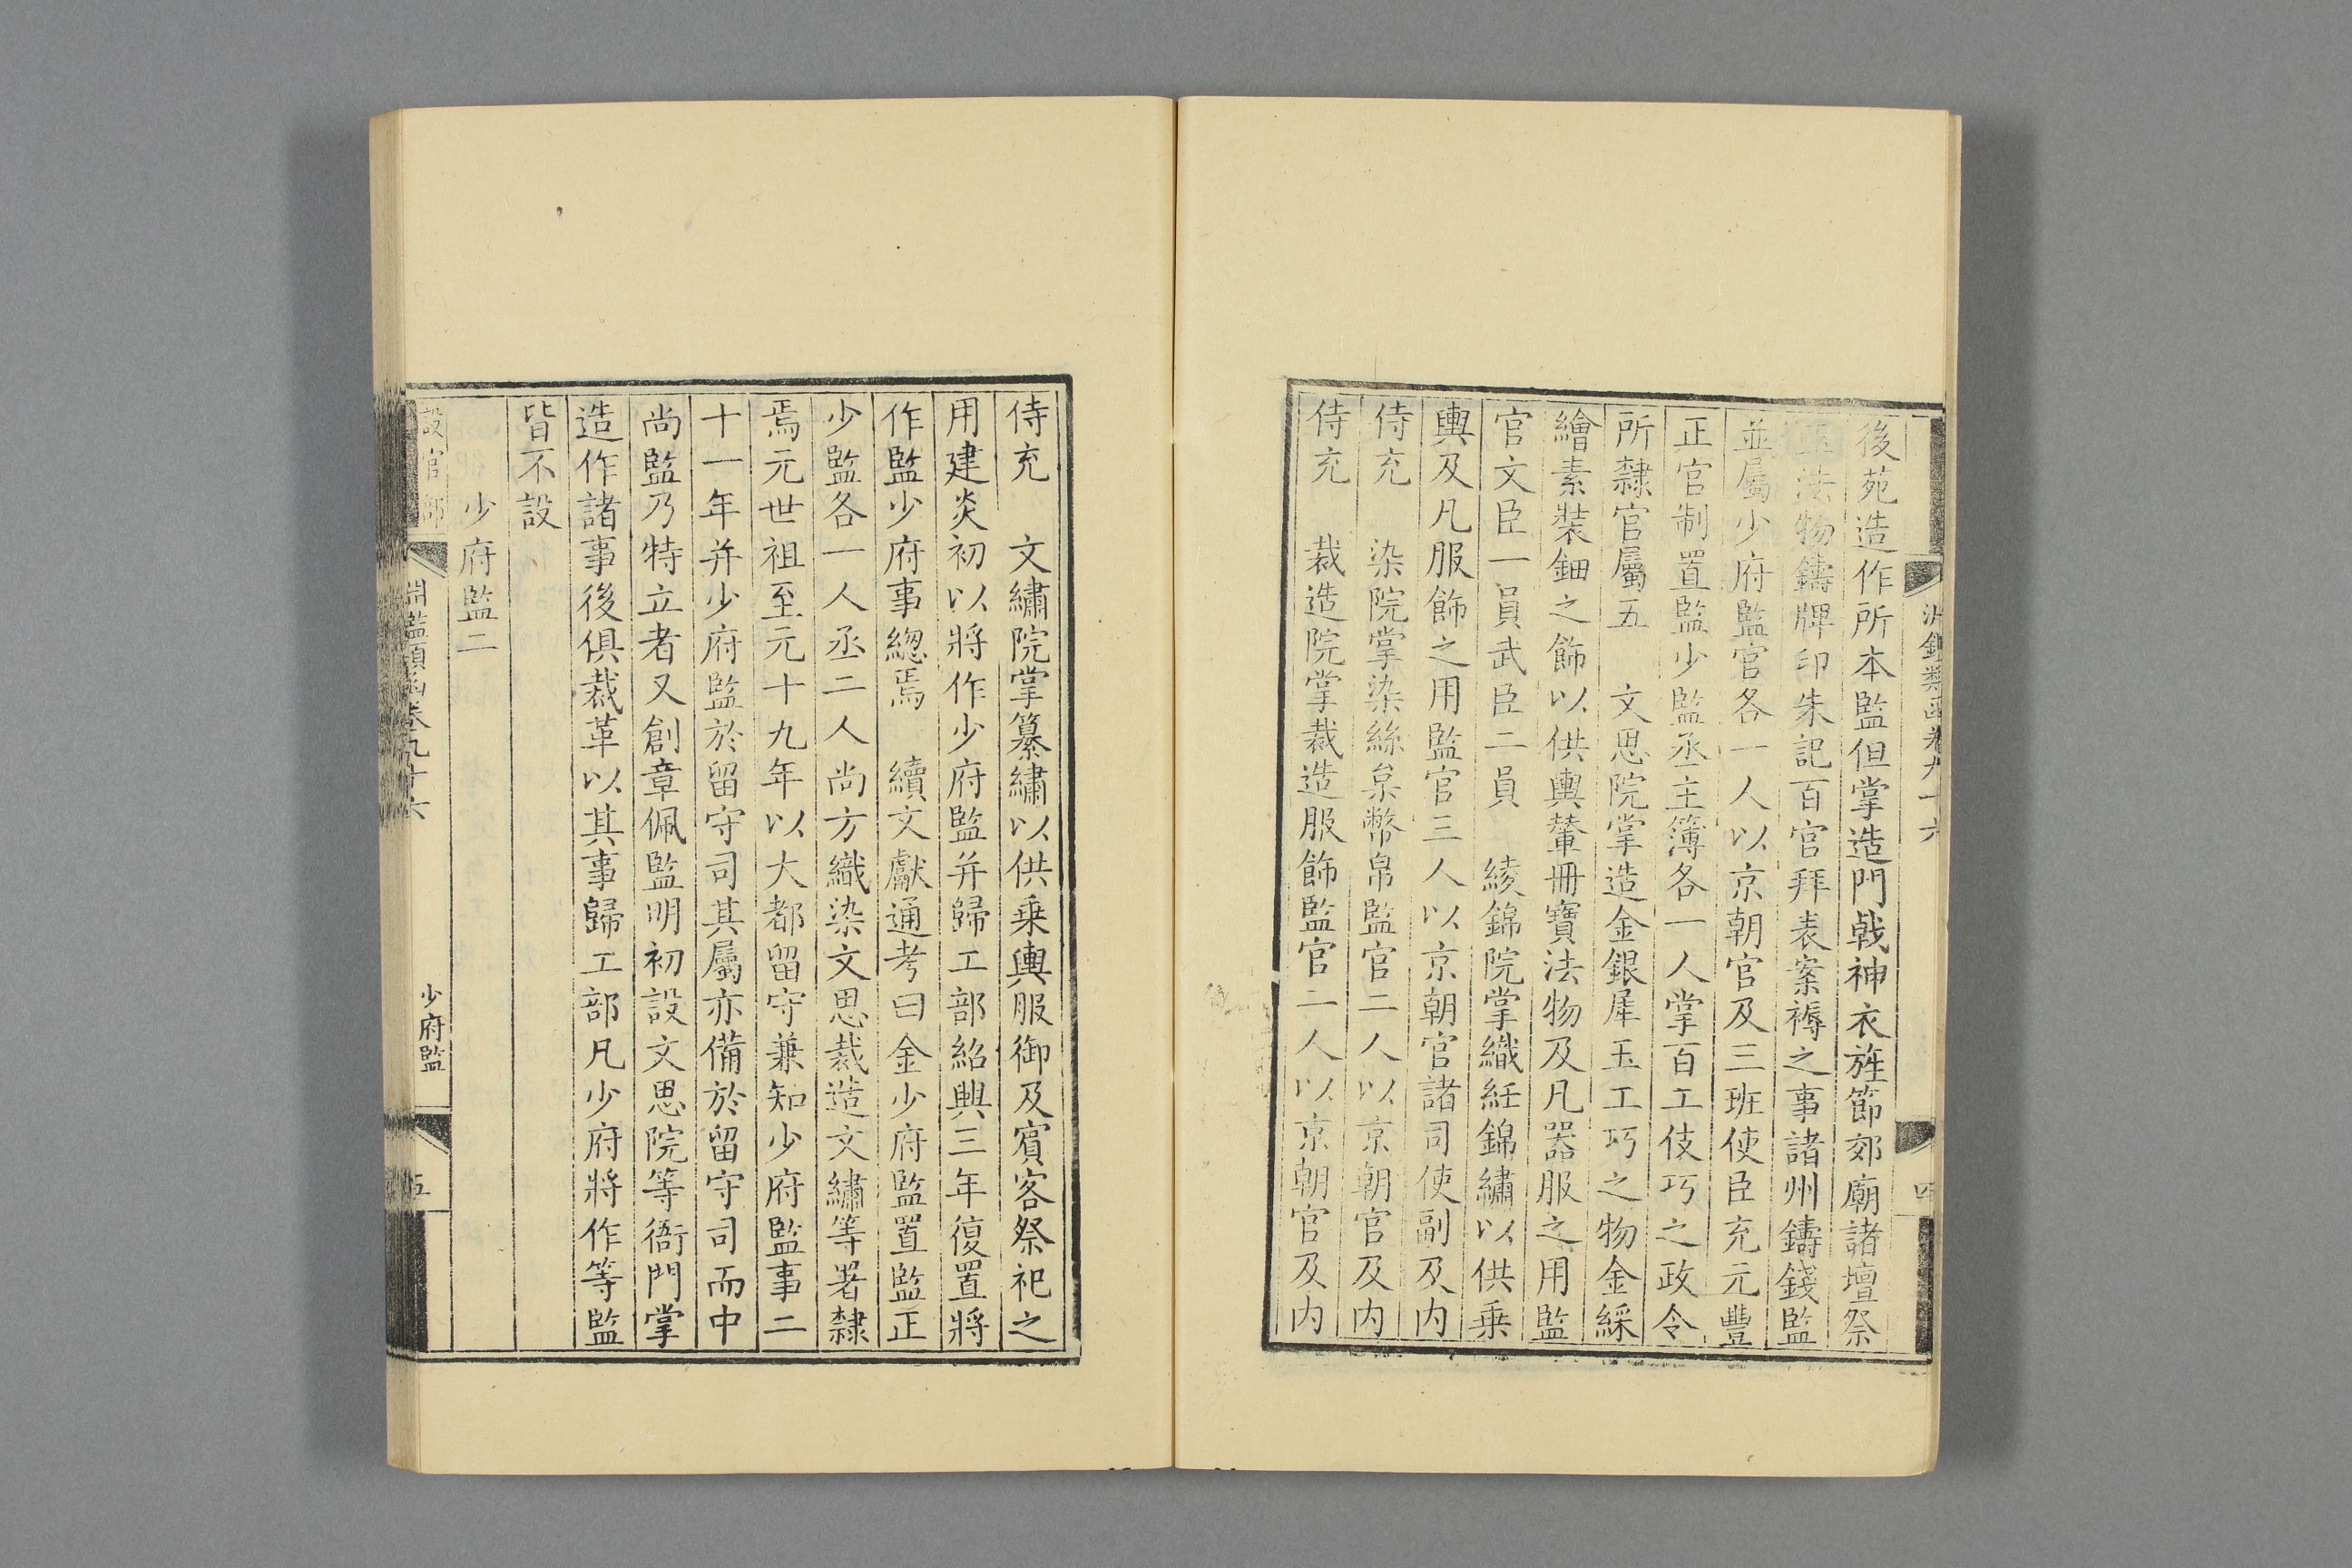 後苑造作所本監但掌造門戟神衣旌節郊廟諸壇祭
玉法物鑄牌印朱記百官拜表案褥之事諸州鑄錢監
並屬少府監官各一人以京朝官及三班使臣充元豐
正官制置監少監丞主簿各一人掌百工伎巧之政令
所隸官屬五　文思院掌造金銀犀玉工巧之物金綵
繪素裝鈿之飾以供輿輦冊寶法物及凡器服之用監
官文臣一員武臣二員　綾錦院掌織紝錦繡以供乗
輿及凡服飾之用監官三人以京朝官諸司使副及内
侍充　染院掌染絲枲幣帛監官二人以京朝官及内
侍充　裁造院掌裁造服飾監官二人以京朝官及内
侍充　文繡院掌纂繡以供乗輿服御及賓客祭祀之
用建炎初以將作少府監并歸工部紹興三年復置將
作監少府事緫焉　續文獻通考曰金少府監置監正
少監各一人丞二人尚方織染文思裁造文繡等署隸
焉元世祖至元十九年以大都留守兼知少府監事二
十一年并少府監於留守司其屬亦備於留守司而中
尚監乃特立者又創章佩監明初設文思院等衙門掌
造作諸事後俱裁革以其事歸工部凡少府將作等監
皆不設
少府監二
設官部
淵鑑類函卷九十六
少府監
五